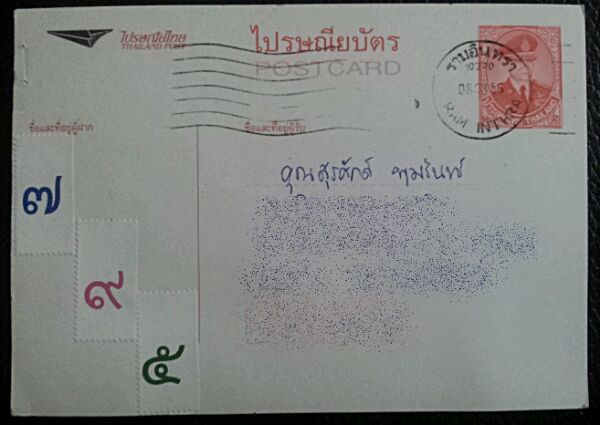 ไปรษณีย์ไทย
THAILAND POST
ไปรษณียบัตร
POSTCARD
รามอินทรา
10220
RAM INTHRA
ชื่อและที่อยู่ผู้ฝาก
ชื่อและที่อยู่ผู้รับ
คุณสุรศักดิ์
๗
๙
๕